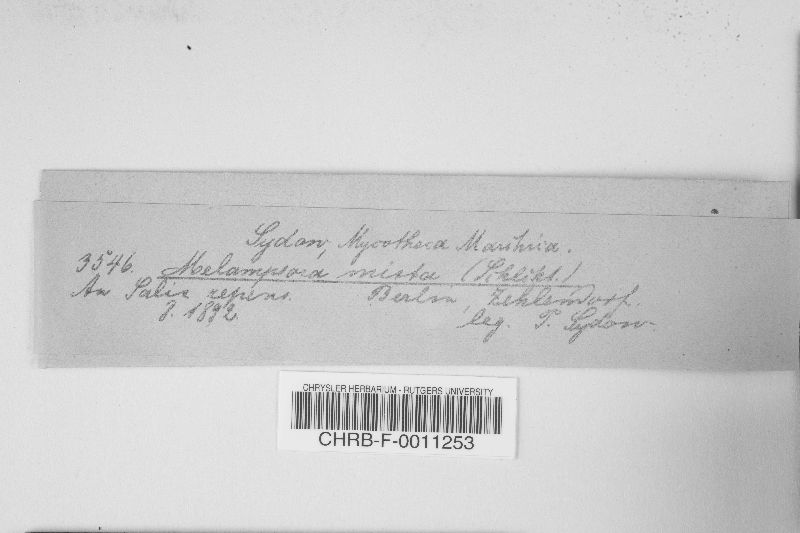 Sydow, Mycotheca Marchica.
3546. Melampsora mixta (Schlcht.)
An Salix repens. Berlin, Zehlendorf.
8. 1892. leg. P. Sydow.
CHRYSLER HERBARIUM - RUTGERS UNIVERSITY
CHRB-F-0011253